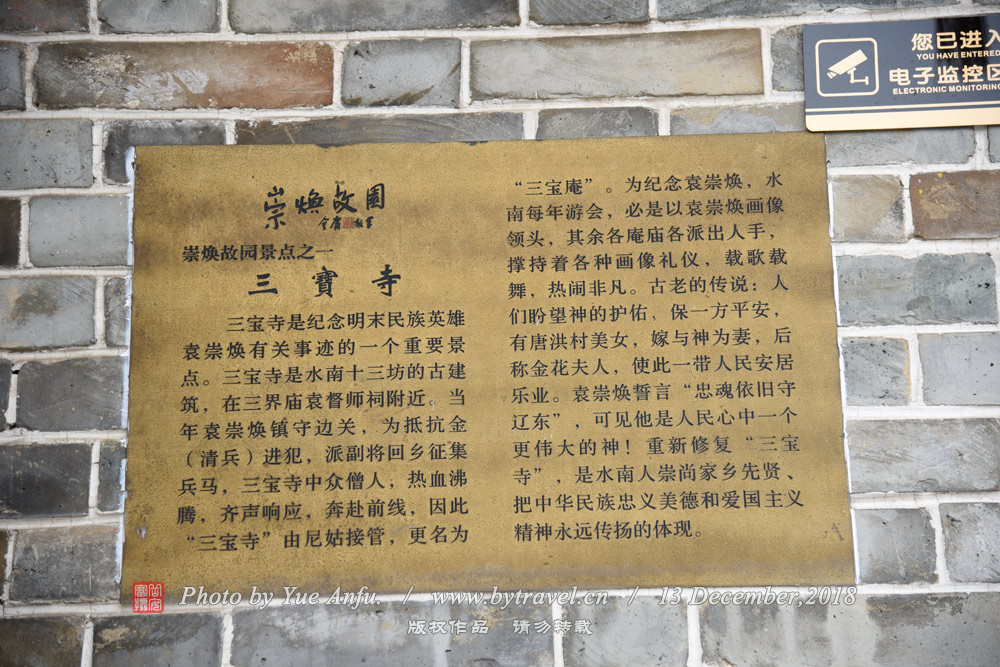 崇焕故园
崇焕故园景点之一
三寶寺
三宝寺是纪念明末民族英雄
袁崇焕有关事迹的一个重要景
点。三宝寺是水南十三坊的古建
筑，在三界庙袁督师祠附近。当
年袁崇焕镇守边关，为抵抗金
（清兵）进犯，派副将回乡征集
兵马，三宝寺中众僧人，热血沸
腾，齐声响应，奔赴前线，因此
“三宝寺”由尼姑接管，更名为
“三宝庵”。为纪念袁崇焕，水
南每年游会，必是以袁崇焕画像
领头，其余各庵庙各派出人手，
撑持着各种画像礼仪，载歌载
舞，热闹非凡。古老的传说：人
们盼望神的护佑，保一方平安，
有唐洪村美女，嫁与神为妻，后
称金花夫人，使此一带人民安居
乐业。袁崇焕誓言“忠魂依旧守
辽东”，可见他是人民心中一个
更伟大的神！重新修复“三宝
寺”，是水南人崇尚家乡先贤、
把中华民族忠义美德和爱国主义
精神永远传扬的体现。
您已进入
YOU HAVE ENTERED
电子监控区
ELECTRONIC MONITORING
Photo by Yue Anfu. / www.bytravel.cn / 13 December,2018
版权作品 请勿转载